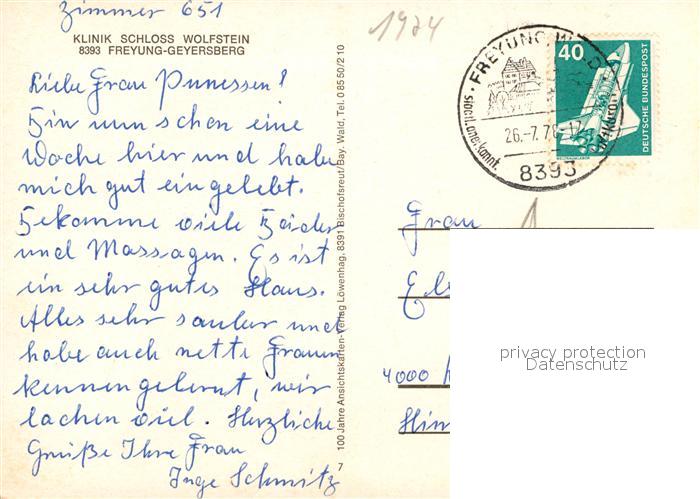 Zimmer 651
KLINIK SCHLOSS WOLFSTEIN
8393 FREYUNG-GEYERSBERG
Liebe Frau Punessen!
Bin nun schon eine
Woche hier und habe
mich gut eingelebt.
Bekomme viele Bäder
und Massagen. Es ist
ein sehr gutes Haus.
Alles sehr sauber und
habe auch nette Frauen
kennengelernt, wir
lachen viel. Herzliche
Grüße Ihre Frau
Inge Schmitz
7
100 Jahre Ansichtskarten-Verlag Löwenhag, 8391 Bischofsreut/Bay. Wald, Tel. 0 85 50/2 10
1974
FREYUNG
staatl. anerkannt.
26.-7.78-17
8393
40
DEUTSCHE BUNDESPOST
Frau
1
4000
privacy protection
Datenschutz